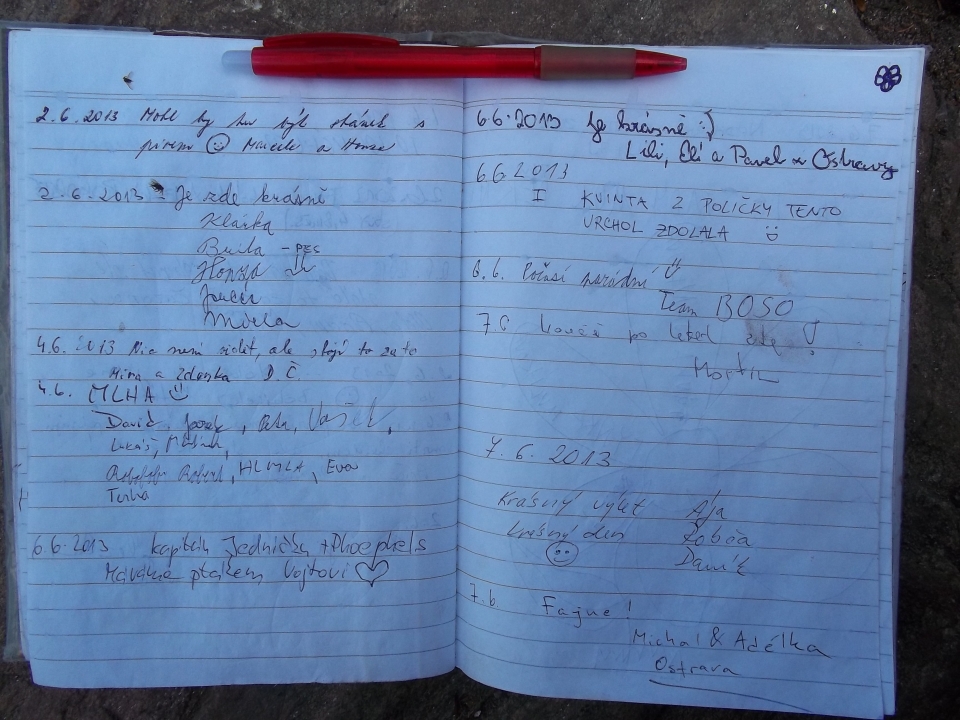 2.6.2013 Mohl by tu být stánek s
pivem Marcela a Honza
2.6.2013 - Je zde krásně
Klárka
- PES
Honza
Mirka
4.6.2013 Nic není vidět, ale stojí to za to
Míra a Zdenka D.Č.
4.6. MLHA
David, , Petr, Vašek,
Lukáš,
Robert, , Eva
6.6.2013 kapitán Jednička +
ptákem Vojtovi
6.6.2013 Je krásně :)
Lili, Elí a Pavel z Ostravy
6.6 2013
I KVINTA Z POLIČKY TENTO
VRCHOL ZDOLALA
6.6. Počasí parádní
Team BOSO
7.6 po zde!
Martin
7.6.2013
Krásný výlet Ája
krásný den
7.6 Fajne!
Michal & Adélka
Ostrava